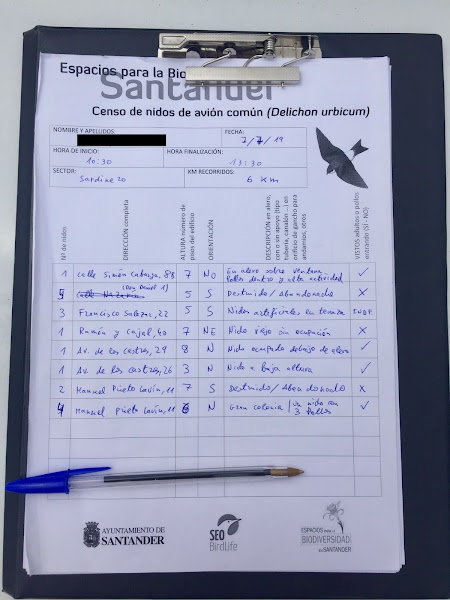 Espacios para la Bio
Santander
Censo de nidos de avión común (Delichon urbicum)
NOMBRE Y APELLIDOS:
FECHA:
7/7/19
HORA DE INICIO:
10:30
HORA FINALIZACIÓN:
13:30
SECTOR:
Sardinero
KM RECORRIDOS:
6 KM
Nº de nidos
DIRECCIÓN completa
ALTURA número de pisos del edificio
ORIENTACIÓN
DESCRIPCIÓN en alero, con o sin apoyo (tipo tubería, canalón ...) en orificio de gancho para andamios, otros
VISTOS adultos o pollos entrando (SÍ - NO)
1 Calle Simón Cabarga, 88 7 NO En alero sobre ventana. Pollos dentro y alta actividad ✓
5 5 S Destruido/Abandonado X
3 Francisco Salazar, 22 5 S Nidos artificiales en terraza
1 Ramón y Cajal, 40 7 NE Nido viejo sin ocupación X
1 Av. de los Castros, 29 8 N Nido ocupado debajo de alero ✓
1 Av. de los castros, 26 3 N Nido a baja altura ✓
2 Manuel Prieto Lavín, 11 7 S Destruido/Abandonado X
4 Manuel Prieto Lavín, 11 6 N Gran colonia / Un nido con 3 Pollos ✓
AYUNTAMIENTO DE
SANTANDER
SEO
BirdLife
ESPACIOS PARA LA
BIODIVERSIDAD
EN SANTANDER